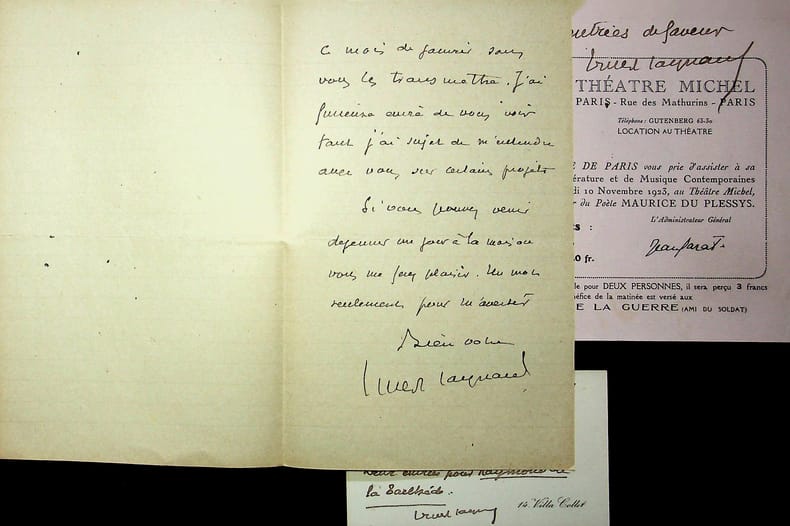 ce mois de janvier sans
vous les transmettre. J'ai
furieuse envie de vous voir
tant j'ai sujet de m'entendre
avec vous sur certains projets
Si vous pouvez venir
dejeuner un jour à la maison
vous me ferez plaisir. Un mot
seulement pour m'avertir
Bien votre
Ernest Raynaud
entrées de faveur
Ernest Raynaud
THÉATRE MICHEL
PARIS - Rue des Mathurins - PARIS
Téléphone : GUTENBERG 63-30
LOCATION AU THÉATRE
E DE PARIS vous prie d'assister à sa
térature et de Musique Contemporaines
di 10 Novembre 1923, au Théâtre Michel,
r du Poète MAURICE DU PLESSYS.
L'Administrateur Général
S :
0 fr.
le pour DEUX PERSONNES, il sera perçu 3 francs
néfice de la matinée est versé aux
E LA GUERRE (AMI DU SOLDAT)
Deux entrées pour Raymond de
la Tailhède.
Ernest Raynaud
14. Villa Collet